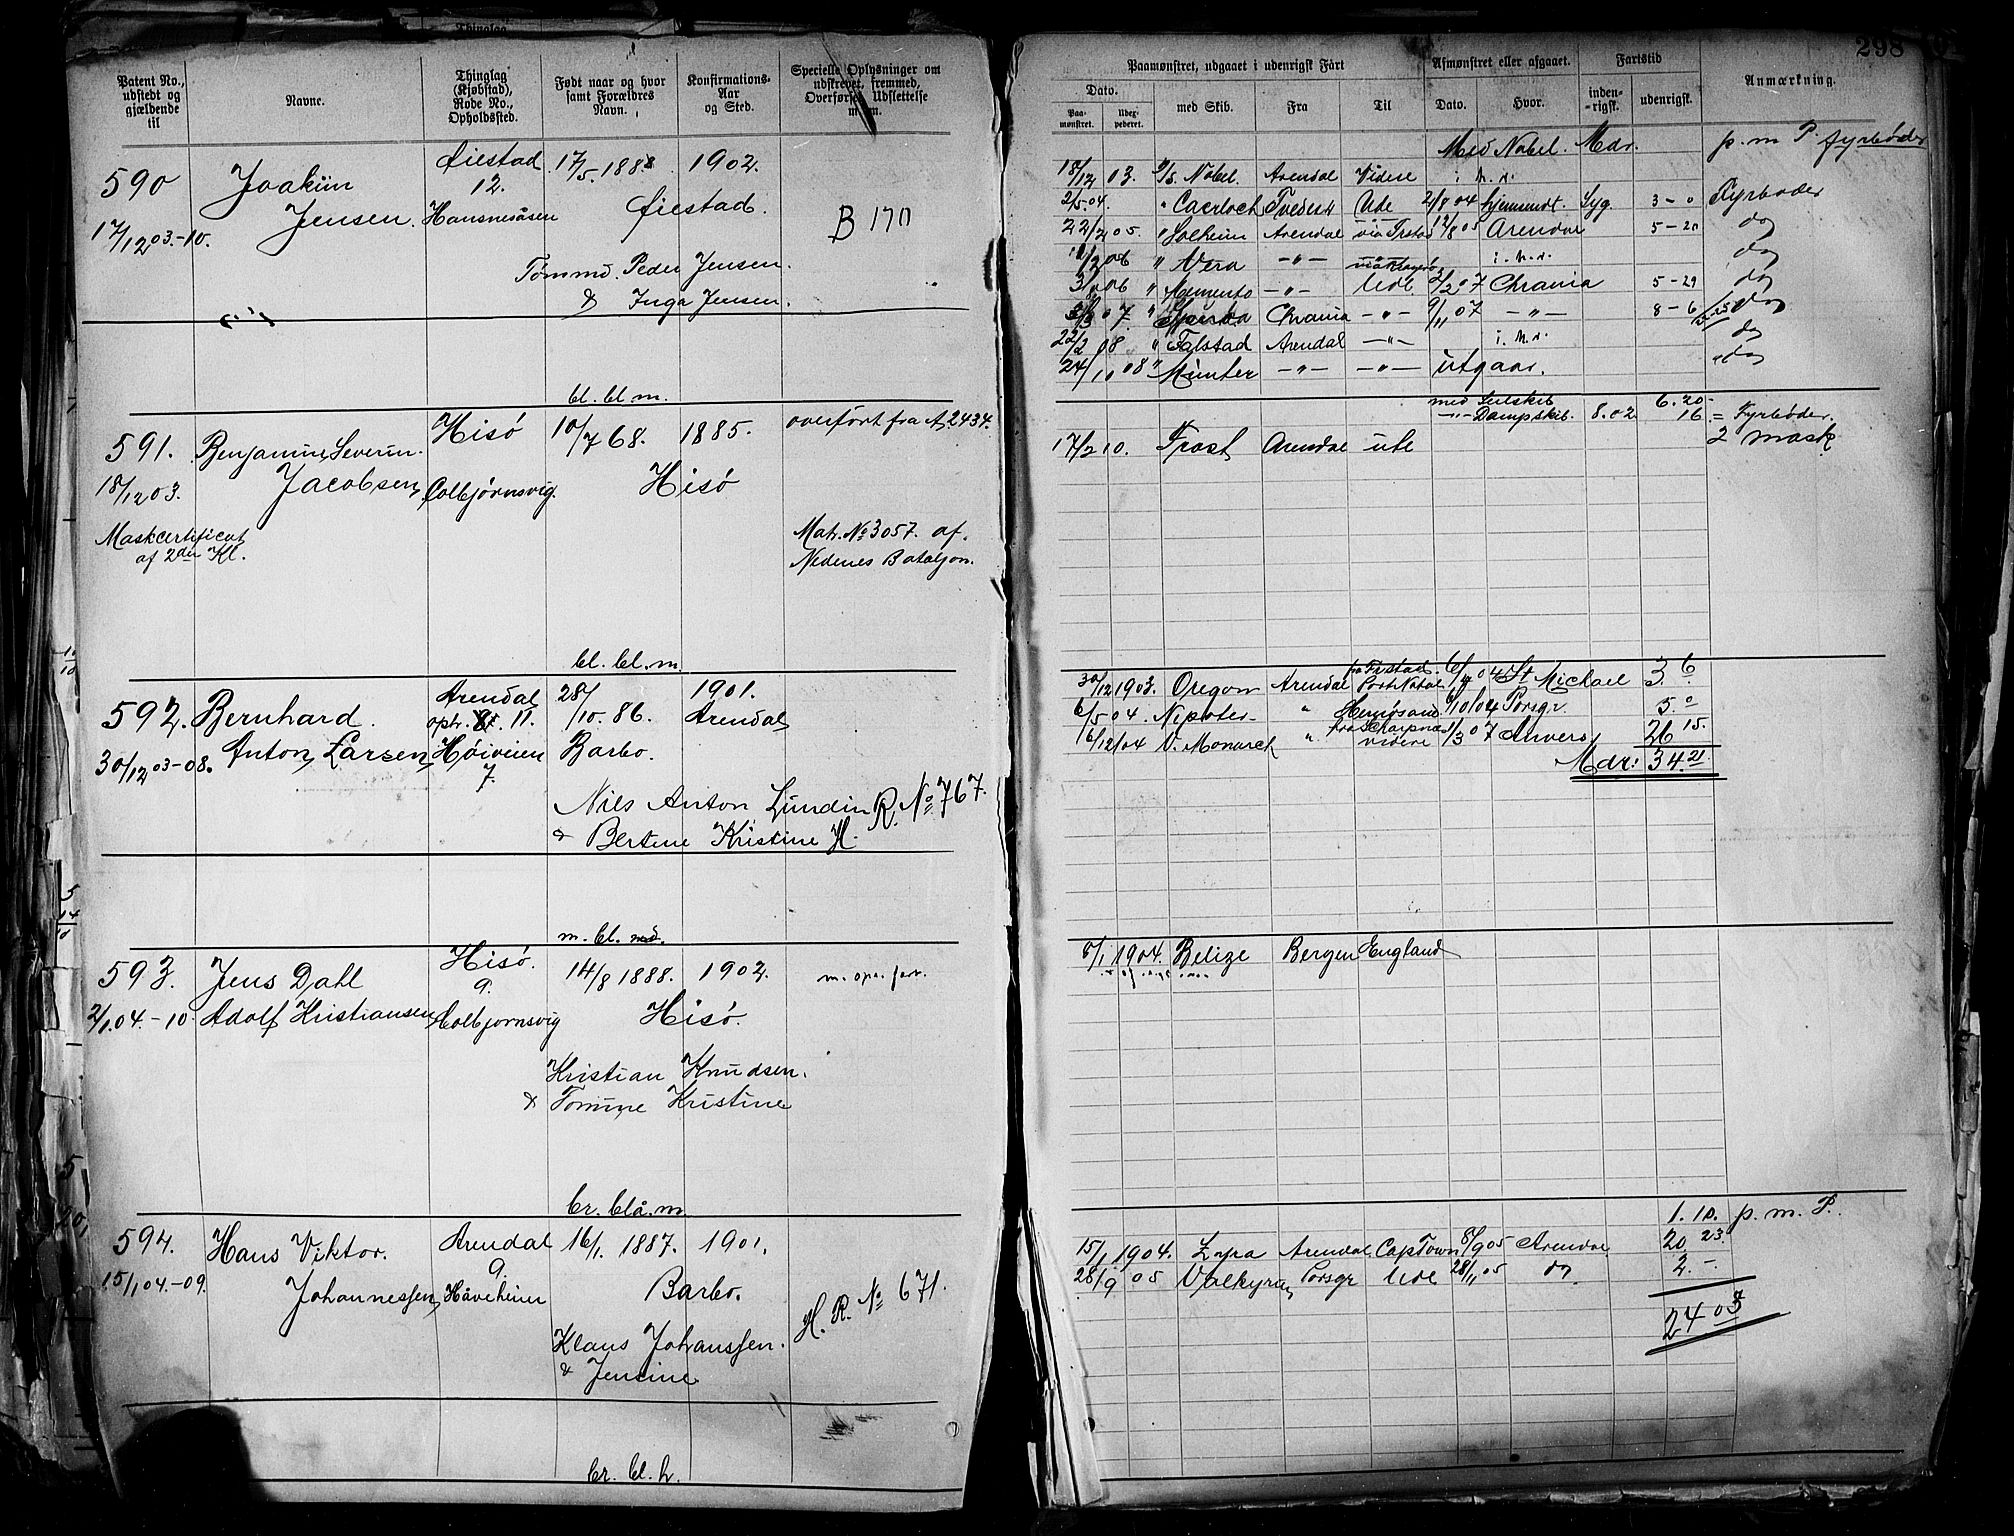 298
Patent No., udstedt og gjældende til
Navne.
Thinglag (Kjøbstad), Rode No., Opholdssted.
Født naar og hvor samt Forældres Navn.
Konfirmations-Aar og Sted.
Specielle Oplysninger om udskrevet, fremmed, Overførsel, Udslettelse m. m.
Paamønstret, udgaaet i udenrigsk Fart
Afmønstret eller afgaaet.
Fartstid
Anmærkning.
Dato.
Paa-mønstret.
Udex-pederet.
med Skib.
Fra
Til
Dato.
Hvor.
inden-rigsk.
udenrigsk.
590
Joakim Jensen
17/12 03.-10.
Øiestad 12.
17/5. 1888
1902.
Øiestad.
B 170
Peder Jensen.
& Inga Jensen.
Med Nobel. Mdr. p. m P. fyrbøder
18/12 03. Nobel. Arendal Videre i. h. d.
2/5 04. " Caerloch Tvedest Ude 2/8 04 hjemsendt. Syg. 3-0 Fyrbøder
22/2 05. " Solheim Arendal via 12/8 05 Arendal 5-20 do
" Vera -"- i. h. d. do
" Memento -"- Ude 2/2 07 Chrania 5-29 do
07. " Chrania -"- 9/11 07 -"- 8-6 do
22/2 08 " Falstad Arendal -"- i. h. d. do
24/10 08 " Münter -"- -"- utgaar. do
bl. bl. m.
591.
Benjamin Severin Jacobsen
18/12 03.
Maskcertificat af 2den Kl.
Hisø
Colbjørnsvig.
10/7 68.
1885.
Hisø
overført fra A. 2434.
Matr. No 3057. af. Nedenes Bataljon.
med Seilskib 6.20
-"- Dampskib. 8.02 16 = Fyrbøder.
17/2 10. Frost Arendal ute 2 mask
bl. bl. m.
592.
Bernhard Anton Larsen
30/12 03-08.
Arendal 11. Høiveien 7.
28/10. 86.
Barbo.
1901.
Arendal
Nils Anton Lundin
& Bertine Kristine H.
R. No 767.
30/12 1903. Oregon Arendal Port Natal 6/4 04 St Michael 3. 6
6/5 04. " Hernøsand 6/10 04 Porsgr. 5. 0
6/12 04 V. Monarch " videre 1/3 07 Anvers 26 15.
Mdr: 34. 21.
m. bl.
593.
Jens Dahl Adolf Kristiansen
2/1. 04.-10.
Hisø. 9.
Colbjørnsvig
14/8 1888.
1902.
Hisø.
Kristian Knudsen.
& Tomine Kristine
8/1 1904. Belize Bergen England
br. blå. m.
594.
Hans Viktor. Johannessen
15/1 04.-09.
Arendal 9.
Håveheien
16/1. 1887.
1901.
Barbo.
Klaus Johanssen.
& Jensine
H. R. No 671.
1. 10. p. m. P.
15/1 1904. Zyra Arendal Cap Town 8/9 05 Arendal 20 23.
28/9 05 Valkyrie Porsgr Ude 28/11 05 do 2. -
24 03
br. bl. h.